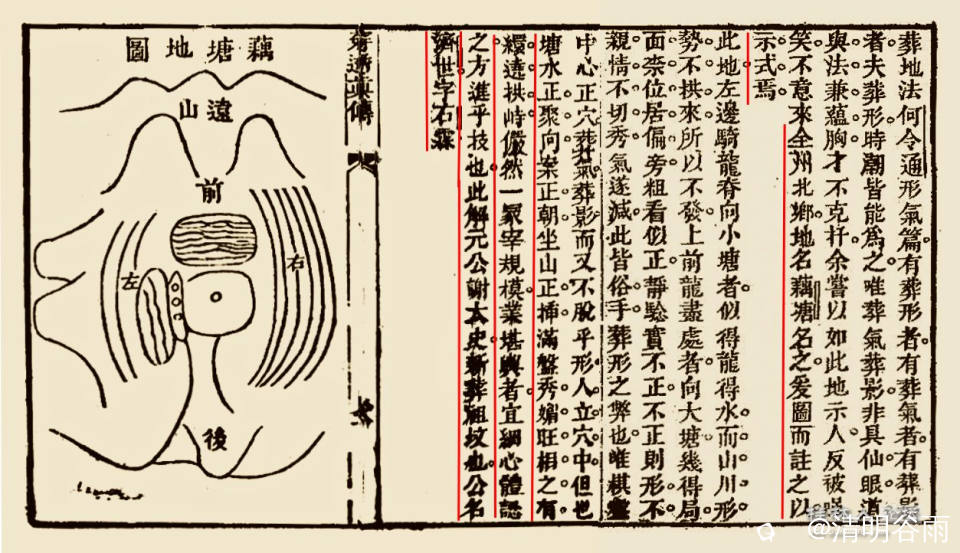 葬地法何令通形氣篇有葬形者有葬氣者有葬影
者夫葬形時潮皆能爲之唯葬氣葬影非具仙眼道
與法兼蘊胸才不克扞余嘗以如此地示人反被
笑不意來全州北鄉地名藕塘名之爰圖而註之以
示式焉
此地左邊騎龍脊向小塘者似得龍得水而山川形
勢不拱來所以不發上前龍盡處者向大塘幾得局
面柰位居偏旁粗看似正靜驗實不正不正則形不
親情不切秀氣遂減此皆俗手葬形之弊也唯棋盤
中心正穴葬氣葬影而又不脫乎形人立穴中但也
塘水正聚向案正朝坐山正揷滿盤秀媚旺相之有
繯遶拱峙儼然一冢宰規模業堪輿者宜細心體認
之方進乎技也此解元公謝太史新葬祖墳也公名
濟世字石霖
真傳
藕塘地圖
遠山
前
左
右
後
@清明谷雨